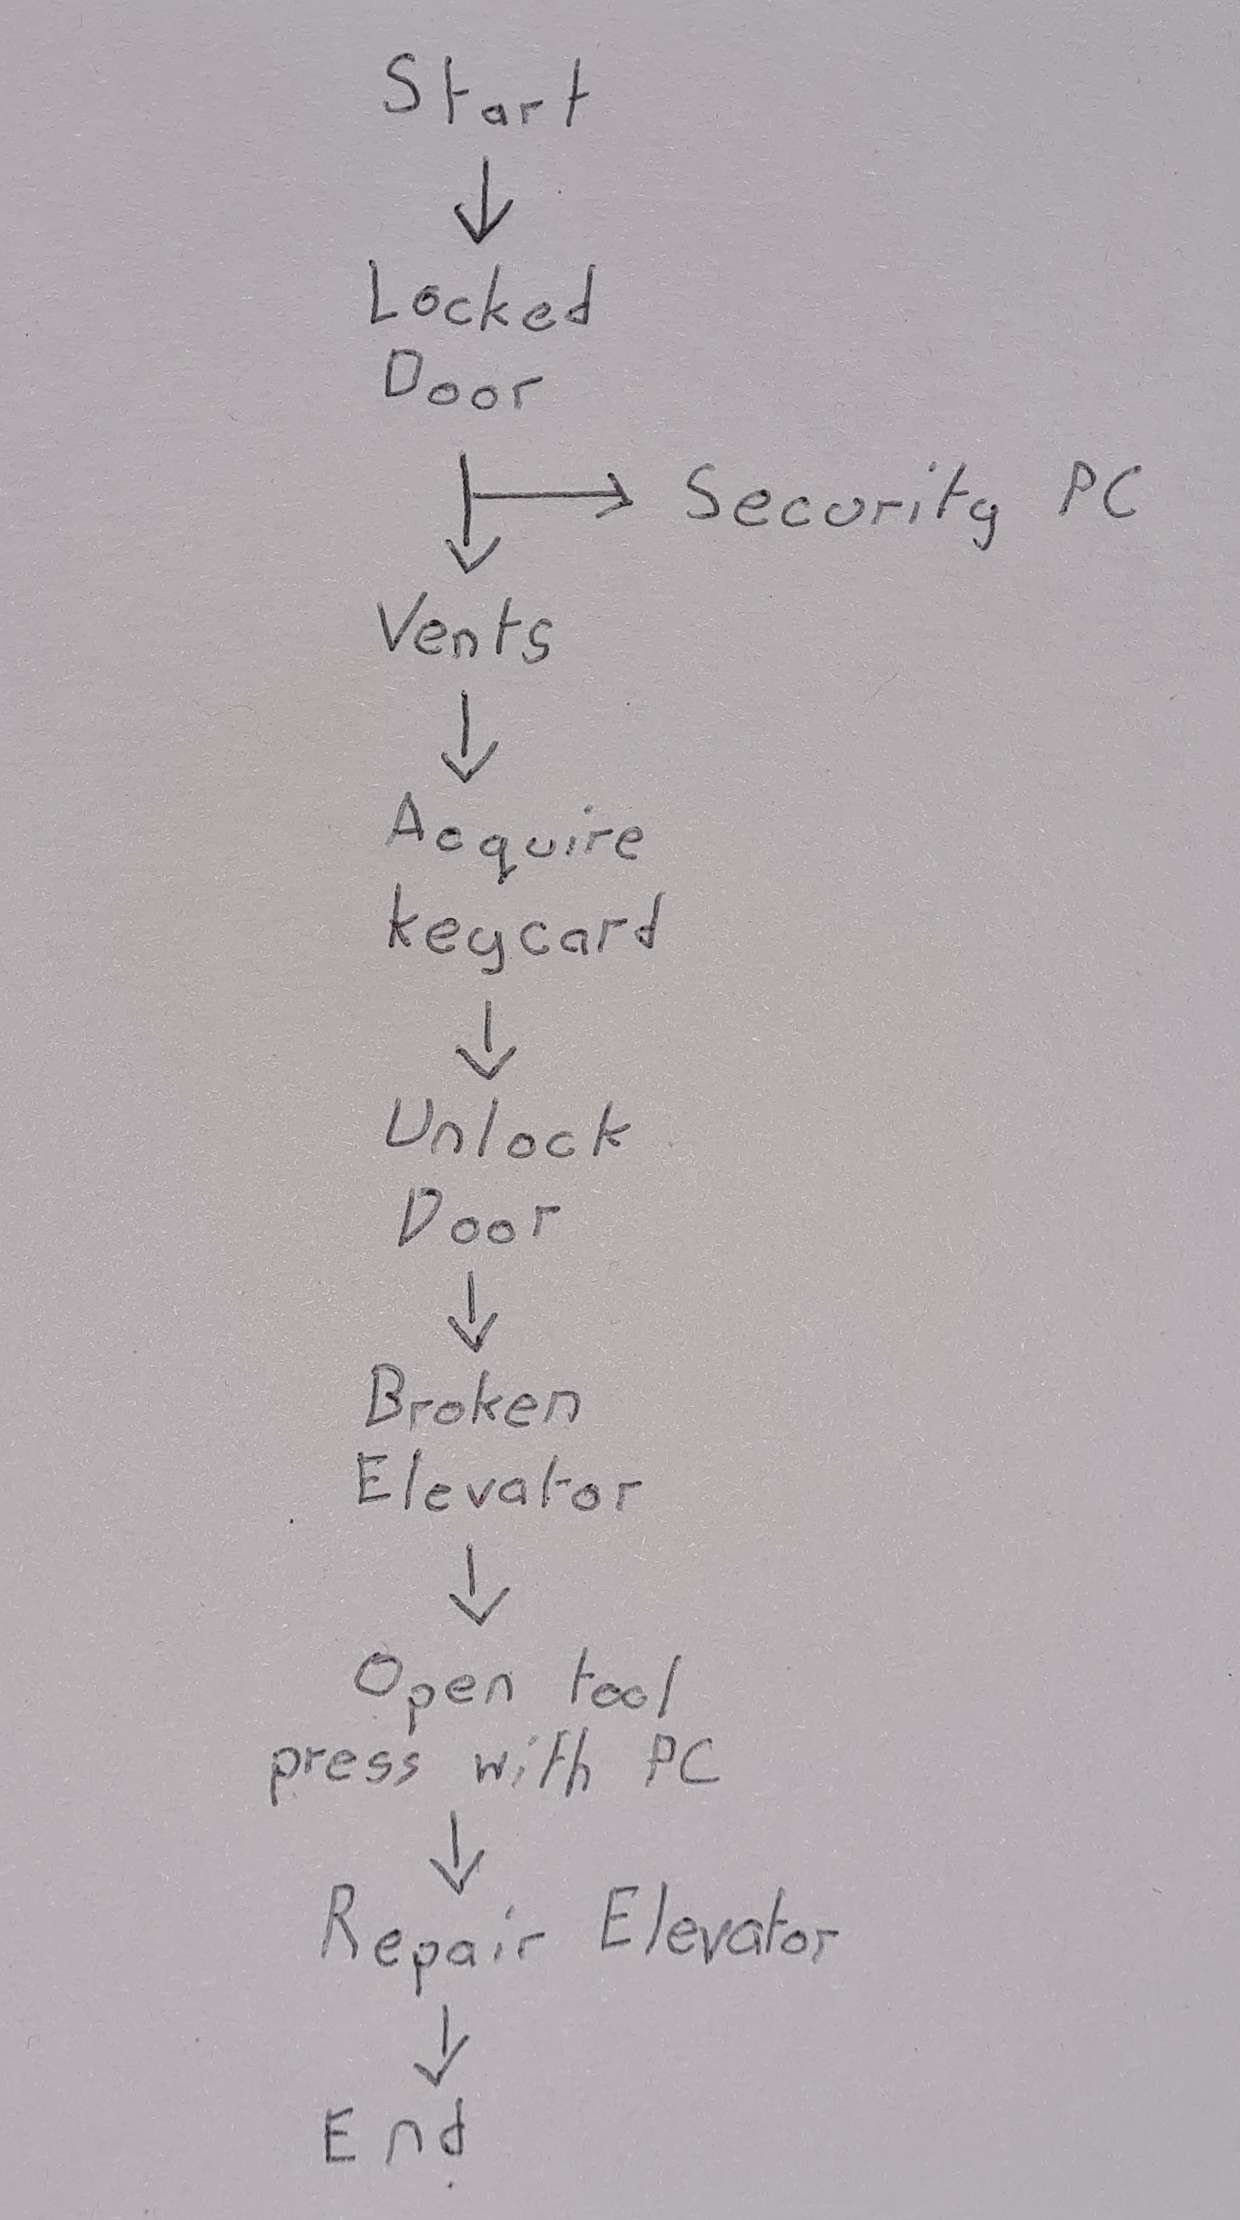 Start
Locked
Door
Security PC
Vents
Acquire
keycard
Unlock
Door
Broken
Elevator
Open tool
press with PC
Repair Elevator
End